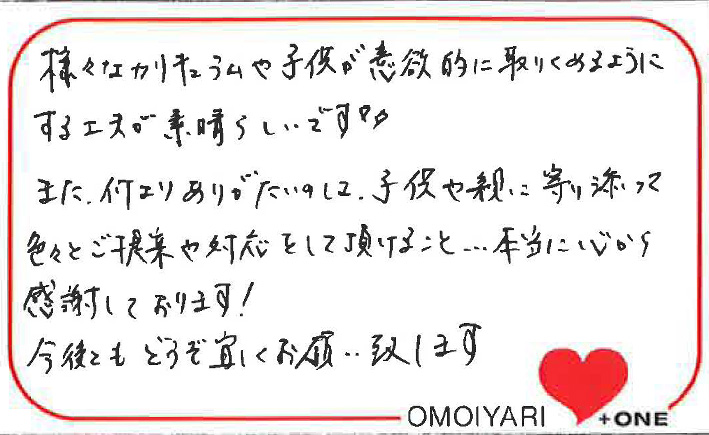 様々なカリキュラムや子供が意欲的に取りくめるように
する工夫が素晴らしいです
また、何よりありがたいのは、子供や親に寄り添って
色々とご提案や対応をして頂けること…本当に心から
感謝しております!
今後ともどうぞ宜しくお願い致します
OMOIYARI +ONE